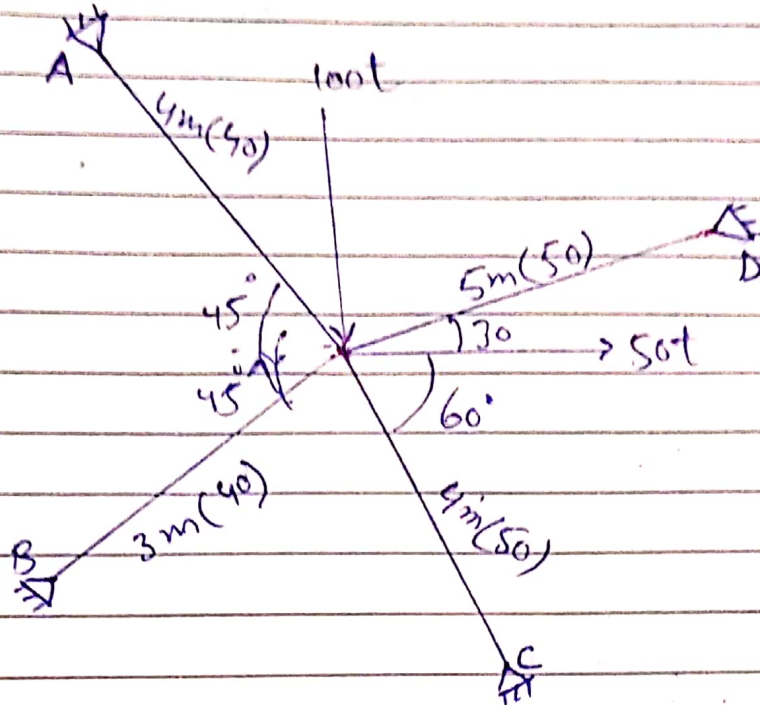 A
100t
4m(40)
D
5m(50)
45°
30
50t
45°
60°
3m(40)
4m(50)
B
C